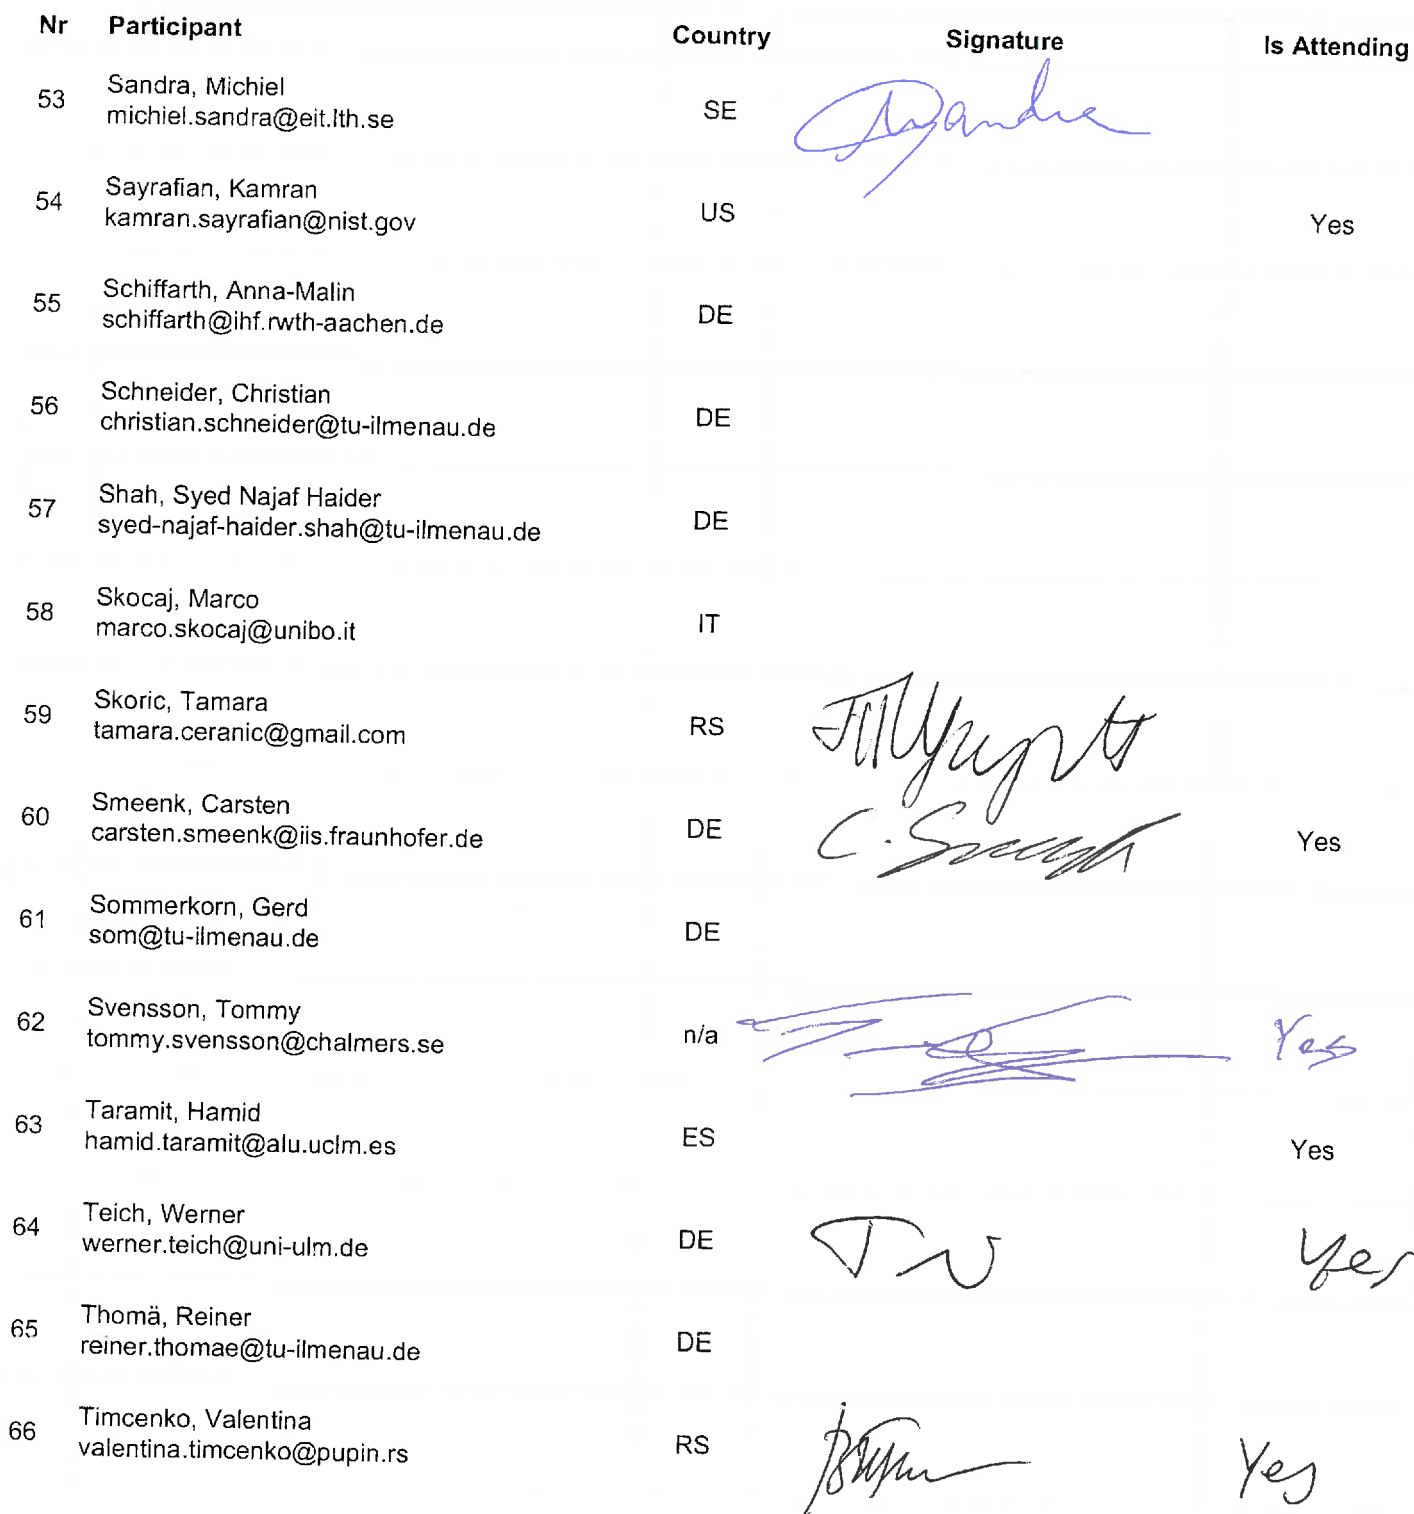 Nr Participant Country Signature Is Attending
53 Sandra, Michiel SE
michiel.sandra@eit.lth.se
54 Sayrafian, Kamran US Yes
kamran.sayrafian@nist.gov
55 Schiffarth, Anna-Malin DE
schiffarth@ihf.rwth-aachen.de
56 Schneider, Christian DE
christian.schneider@tu-ilmenau.de
57 Shah, Syed Najaf Haider DE
syed-najaf-haider.shah@tu-ilmenau.de
58 Skocaj, Marco IT
marco.skocaj@unibo.it
59 Skoric, Tamara RS
tamara.ceranic@gmail.com
60 Smeenk, Carsten DE Yes
carsten.smeenk@iis.fraunhofer.de
61 Sommerkorn, Gerd DE
som@tu-ilmenau.de
62 Svensson, Tommy n/a Yes
tommy.svensson@chalmers.se
63 Taramit, Hamid ES Yes
hamid.taramit@alu.uclm.es
64 Teich, Werner DE Yes
werner.teich@uni-ulm.de
65 Thomä, Reiner DE
reiner.thomae@tu-ilmenau.de
66 Timcenko, Valentina RS Yes
valentina.timcenko@pupin.rs